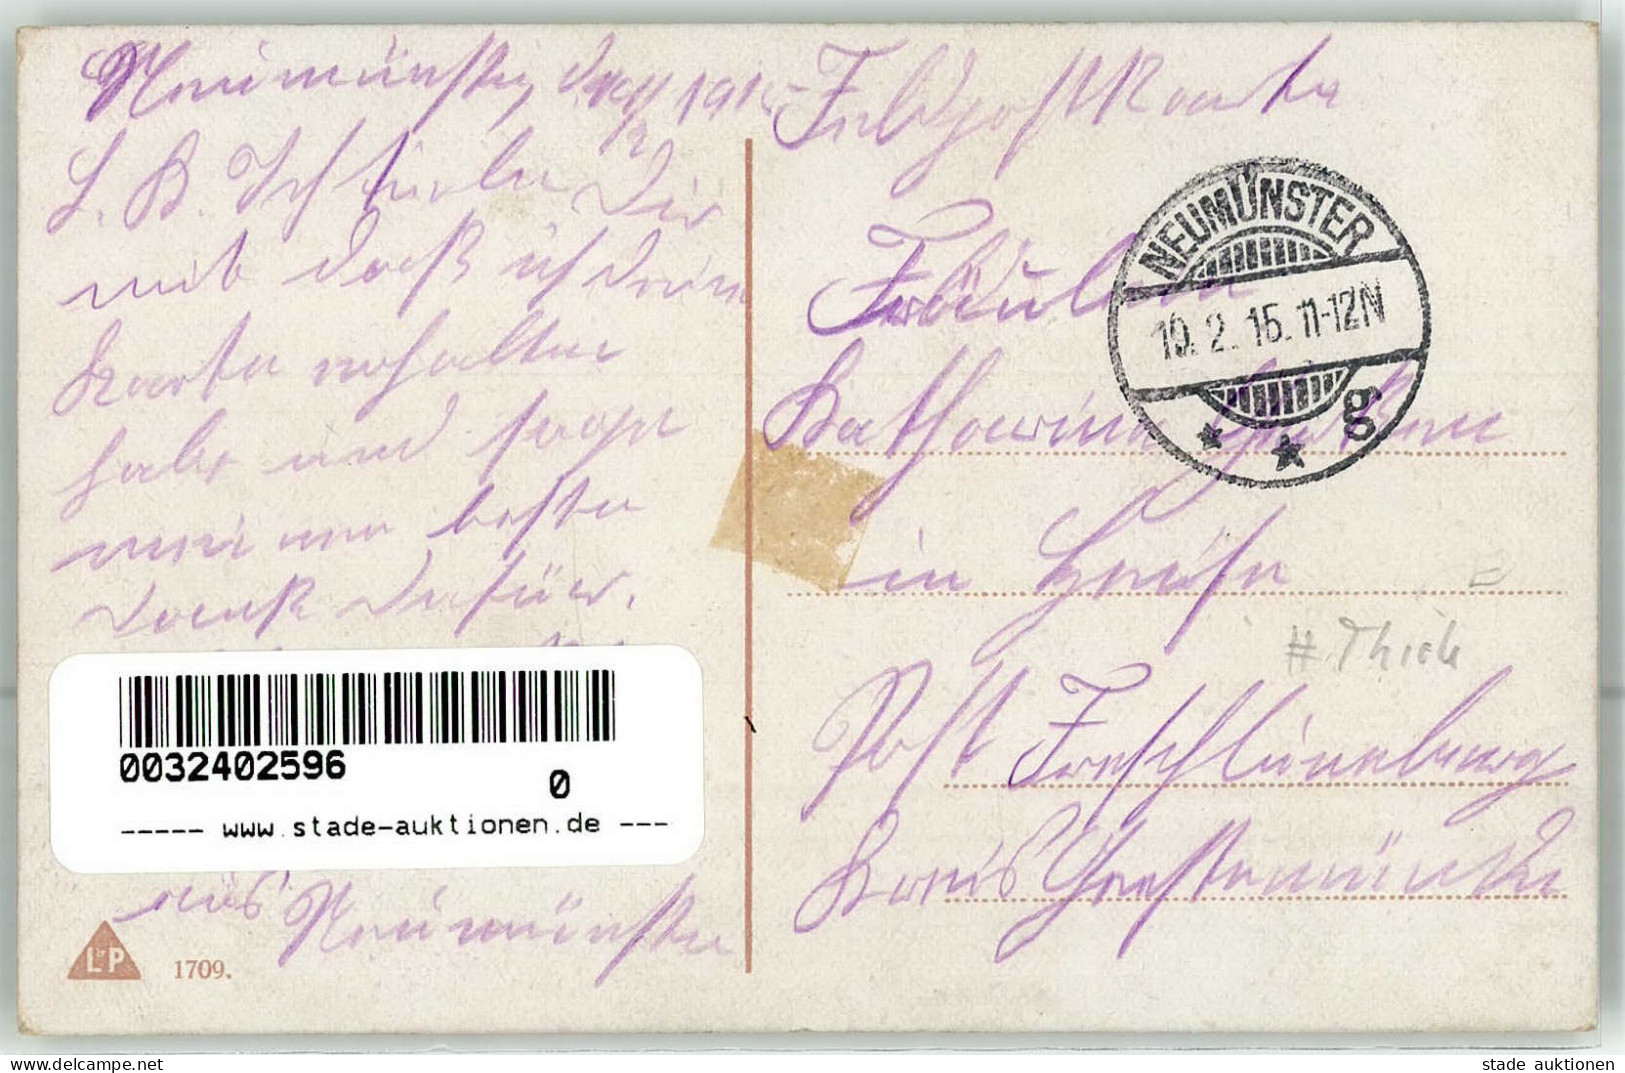 Neumünster, d 19/2 1915
L. B. Ich teile Dir
mit daß ich Deine
Karte erhalten
habe und sage
meinen besten
Dank dafür.
aus Neumünster
L&P
1709.
0032402596
0
----- www.stade-auktionen.de ---
Feldpostkarte
NEUMÜNSTER
19.2.15.11-12N
g
Fräulein
Katharina
in Heise
# Thiele
Post Freschluneburg
Kreis Geestemünde
delcampe.net
stade auktionen